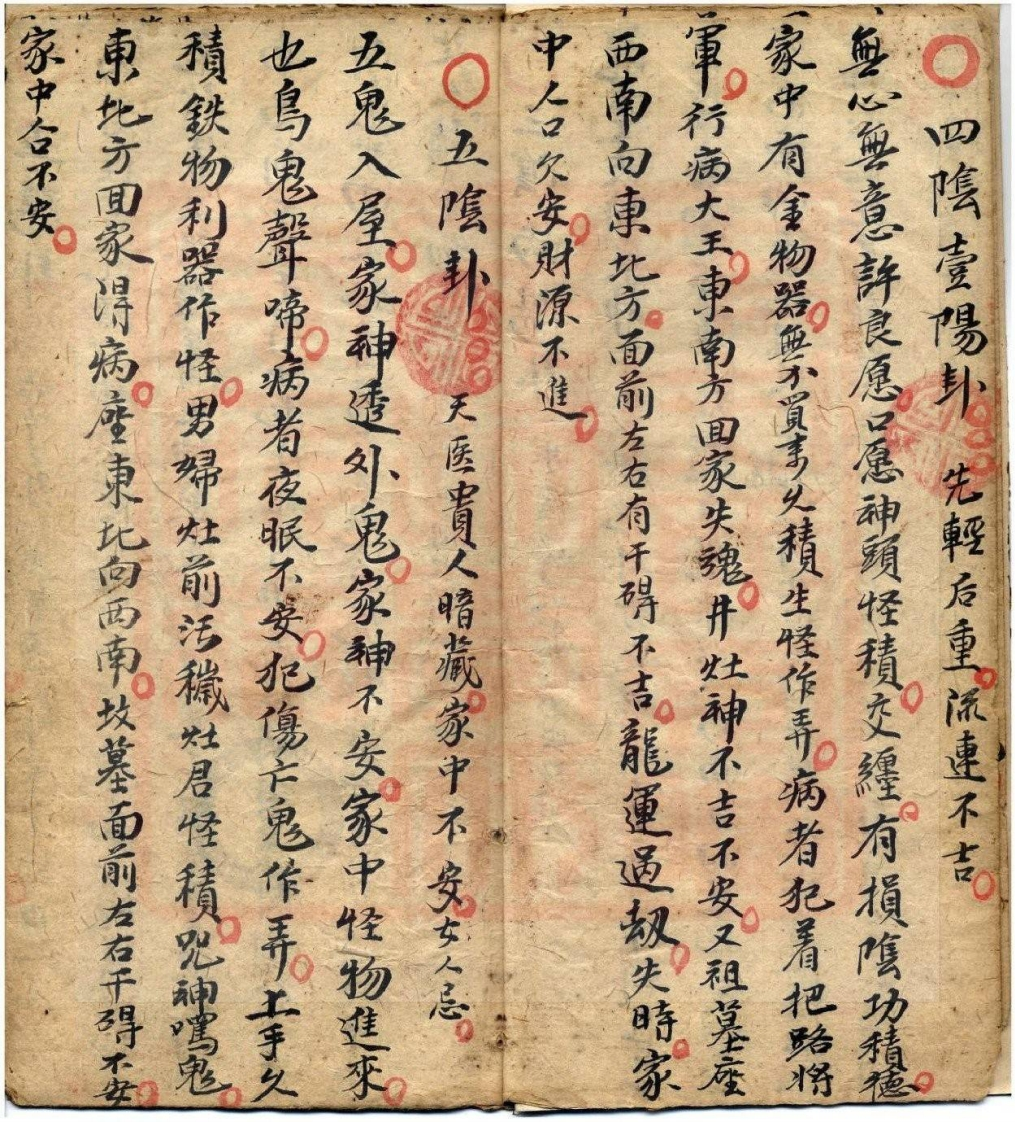 四陰壹陽卦 先輕后重流連不吉
無心無意許良愿口愿神頭怪積交纏有損陰功積德
家中有金物器無不買来久積生怪作弄病者犯着把路將
軍行病大王東南方回家失魂井灶神不吉不安又祖墓座
西南向東北方面前左右有干碍不吉龍運過刼失時家
中人口欠安財源不進
五陰卦 天医貴人暗藏家中不安女人忌
五鬼入屋家神透外鬼家神不安家中怪物進來
也鳥鬼聲啼病者夜眠不安犯傷亡鬼作弄上手久
積鉄物利器作怪男婦灶前污穢灶君怪積咒神罵鬼
東北方回家得病座東北向西南坟墓面前左右干碍不安
家中合不安